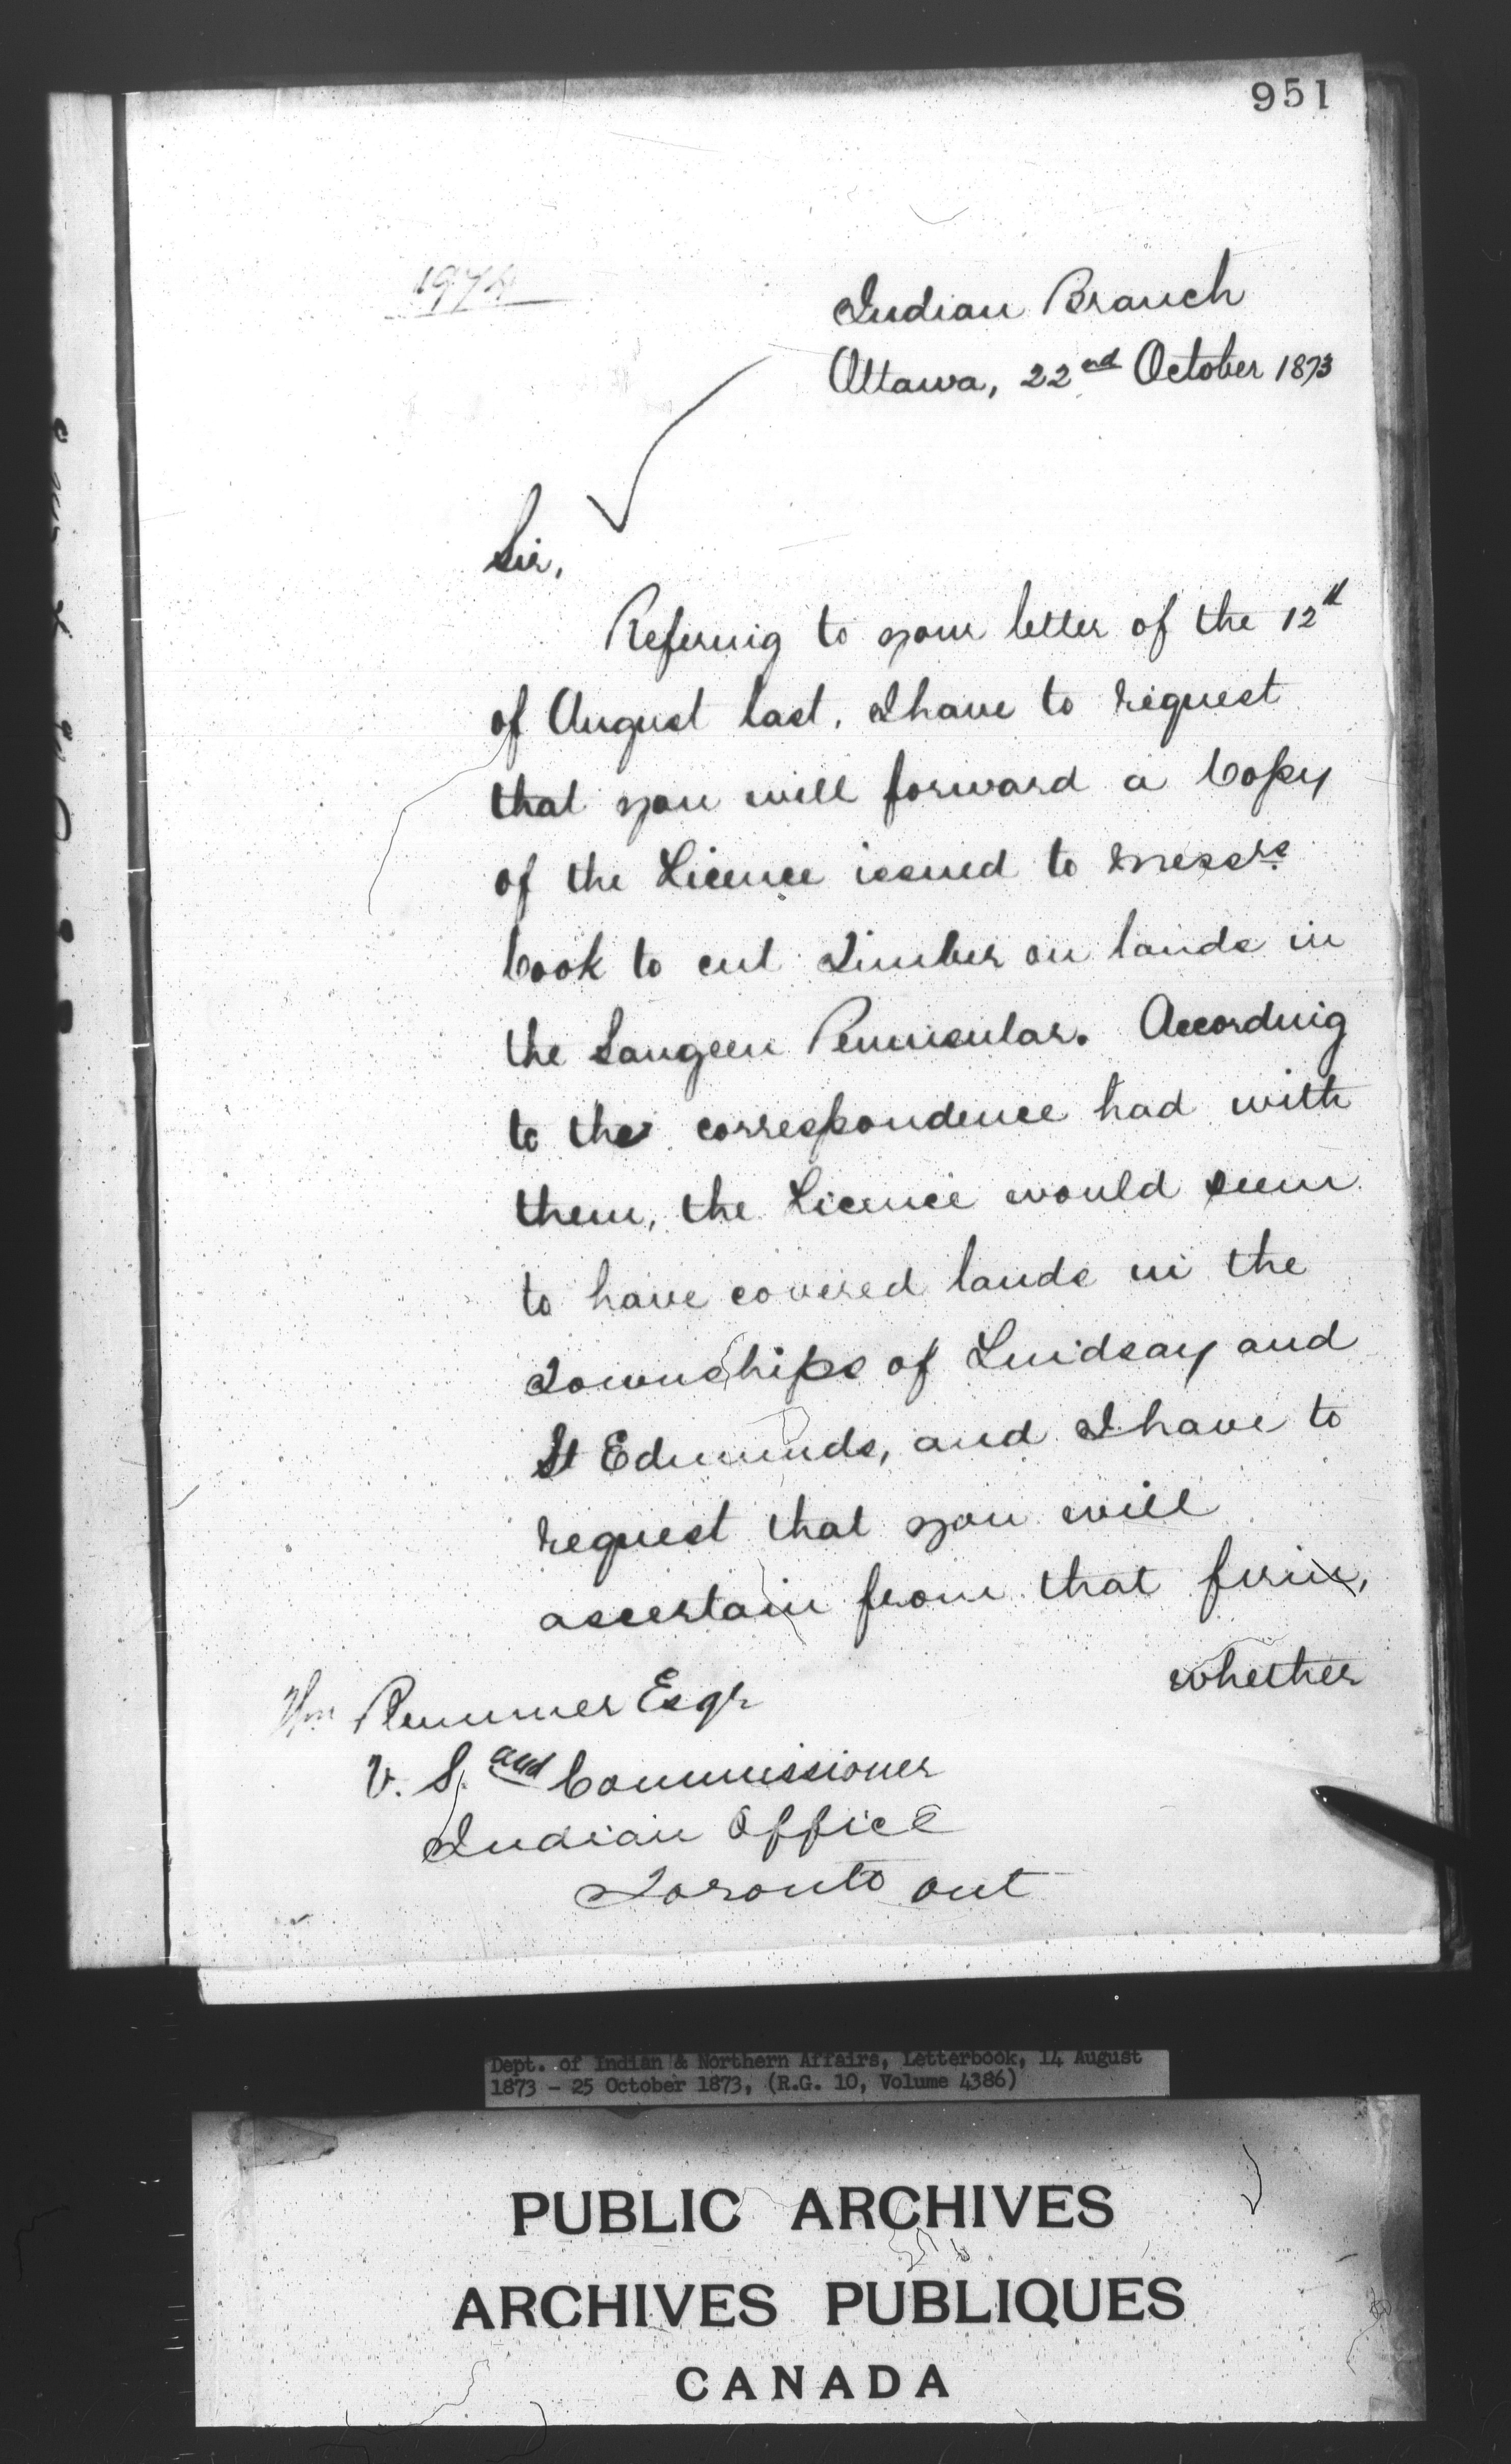 951
1974
Indian Branch
Ottawa, 22nd October 1873
Sir,
Refering to your letter of the 12th
of August last. I have to request
that you will forward a Copy
of the Licence issued to Messrs.
Cook to cut Timber on lands in
the Saugeen Penninsular. According
to the correspondence had with
them, the Licence would seem
to have covered lands in the
Townships of Lindsay and
St Edmunds, and I have to
request that you will
ascertain from that firm,
whether
Wm Plummer Esqr
V. S. and Commissioner
Indian Office
Toronto Ont
Dept. of Indian & Northern Affairs, Letterbook, 14 August
1873 - 25 October 1873, (R.G. 10, Volume 4386)
PUBLIC ARCHIVES
ARCHIVES PUBLIQUES
CANADA